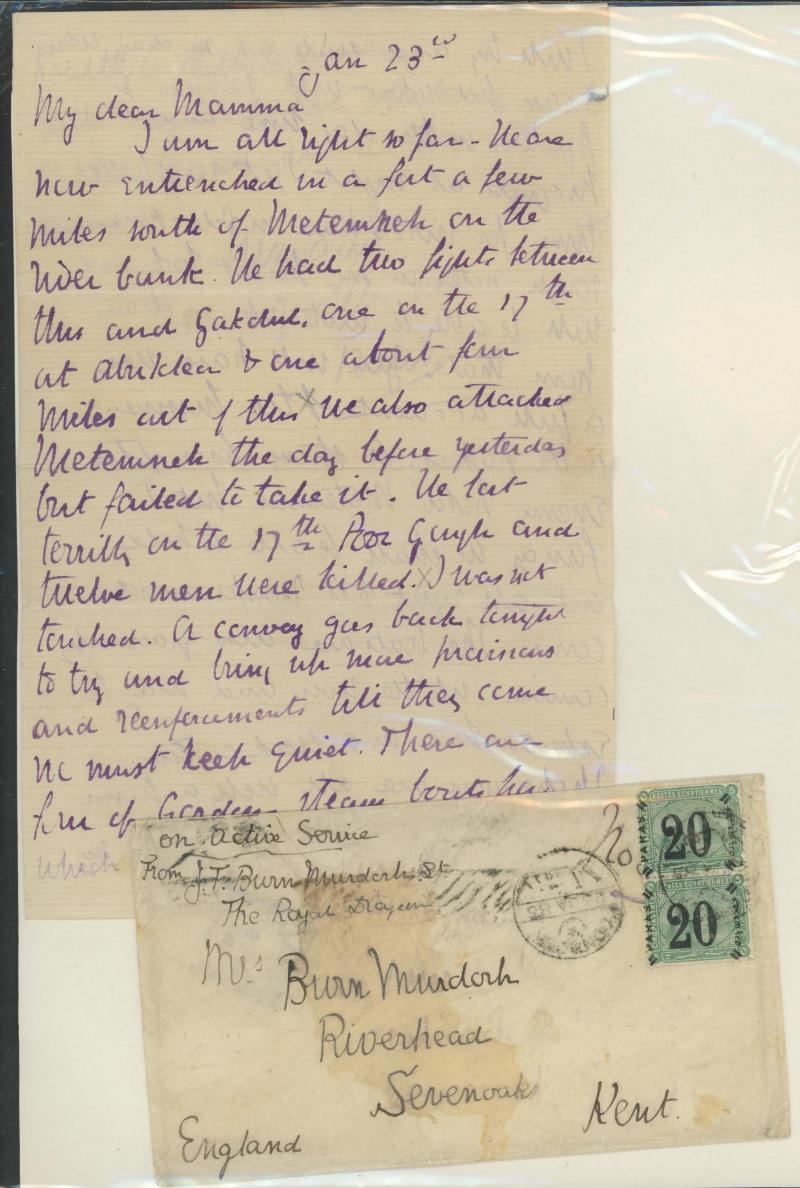 Jan 23rd
My dear Mamma
I am all right so far - We are
now entrenched in a fort a few
miles south of Metemneh on the
river bank. We had two fights between
this and Gakdul, one on the 17th
at Abuklea & one about four
miles out of this X We also attacked
Metemneh the day before yesterday
but failed to take it. We lost
terribly on the 17th Poor Gough and
twelve men were killed. X I was not
touched. A convoy goes back tonight
to try and bring up more provisions
and reenforcements till they come
we must keep quiet. There are
four of Gordons steam boats here
which
On Active Service
From J.F. Burn Murdoch Lt
The Royal Dragoons
Mrs Burn Murdoch
Riverhead
Sevenoaks
Kent.
England
POSTES EGYPTIENNES
20
PARAS
20
PARAS